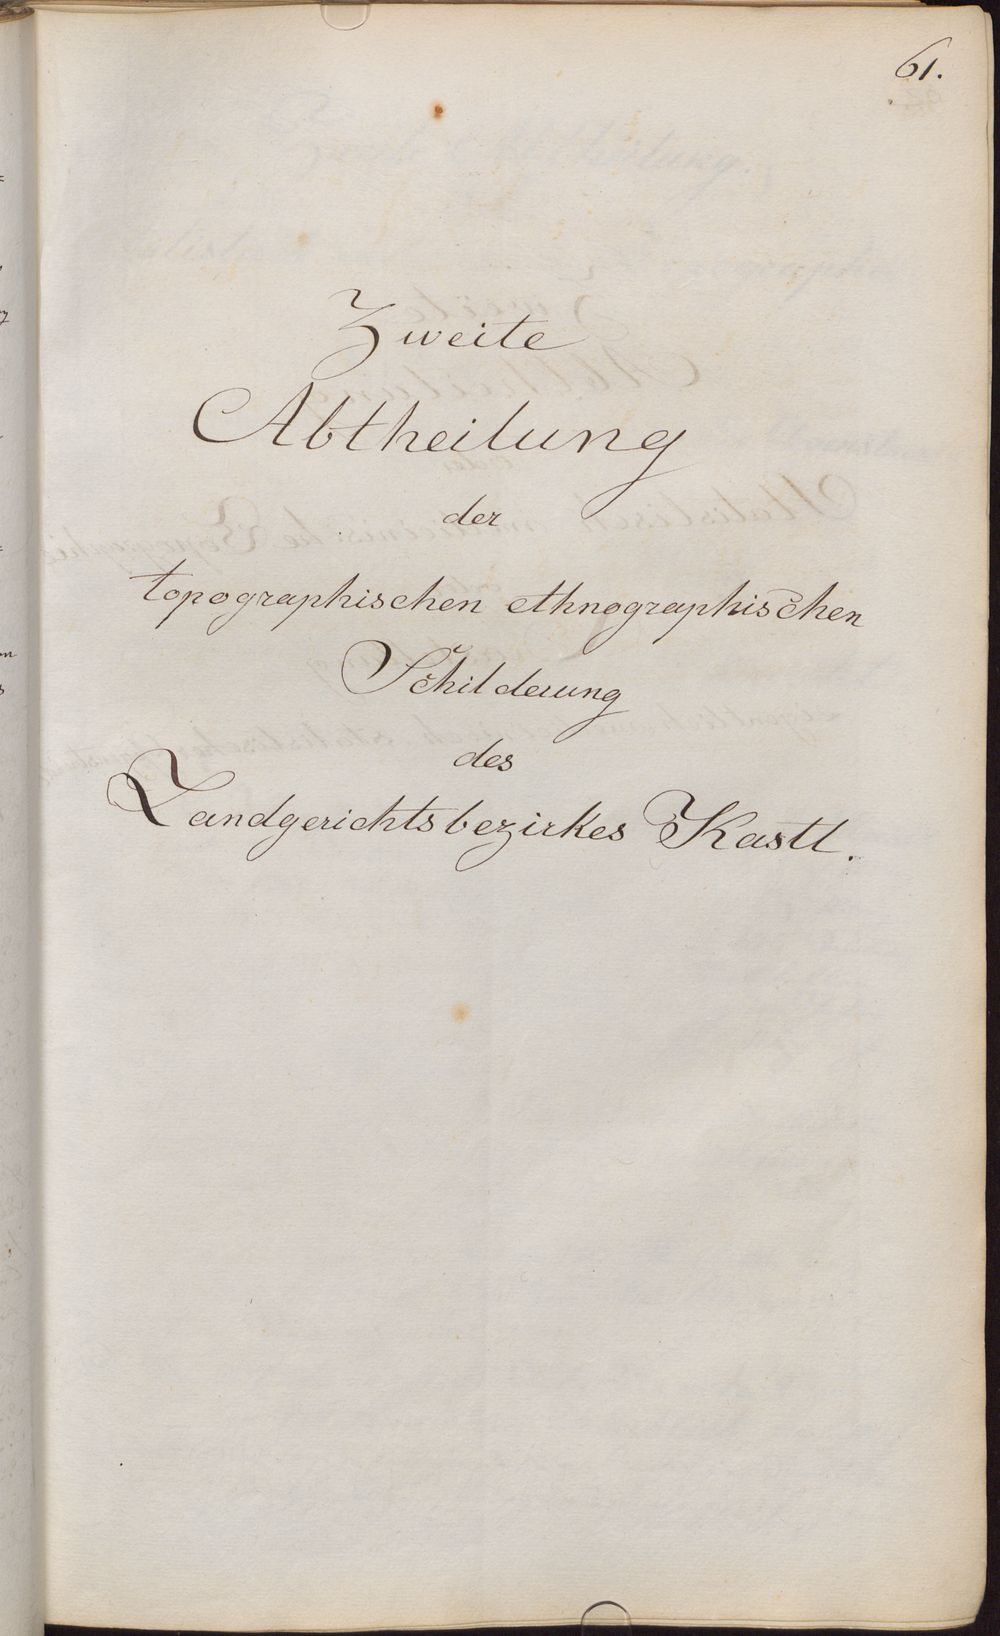 61.
Zweite
Abtheilung
der
topographischen ethnographischen
Schilderung
des
Landgerichtsbezirkes Kastl.